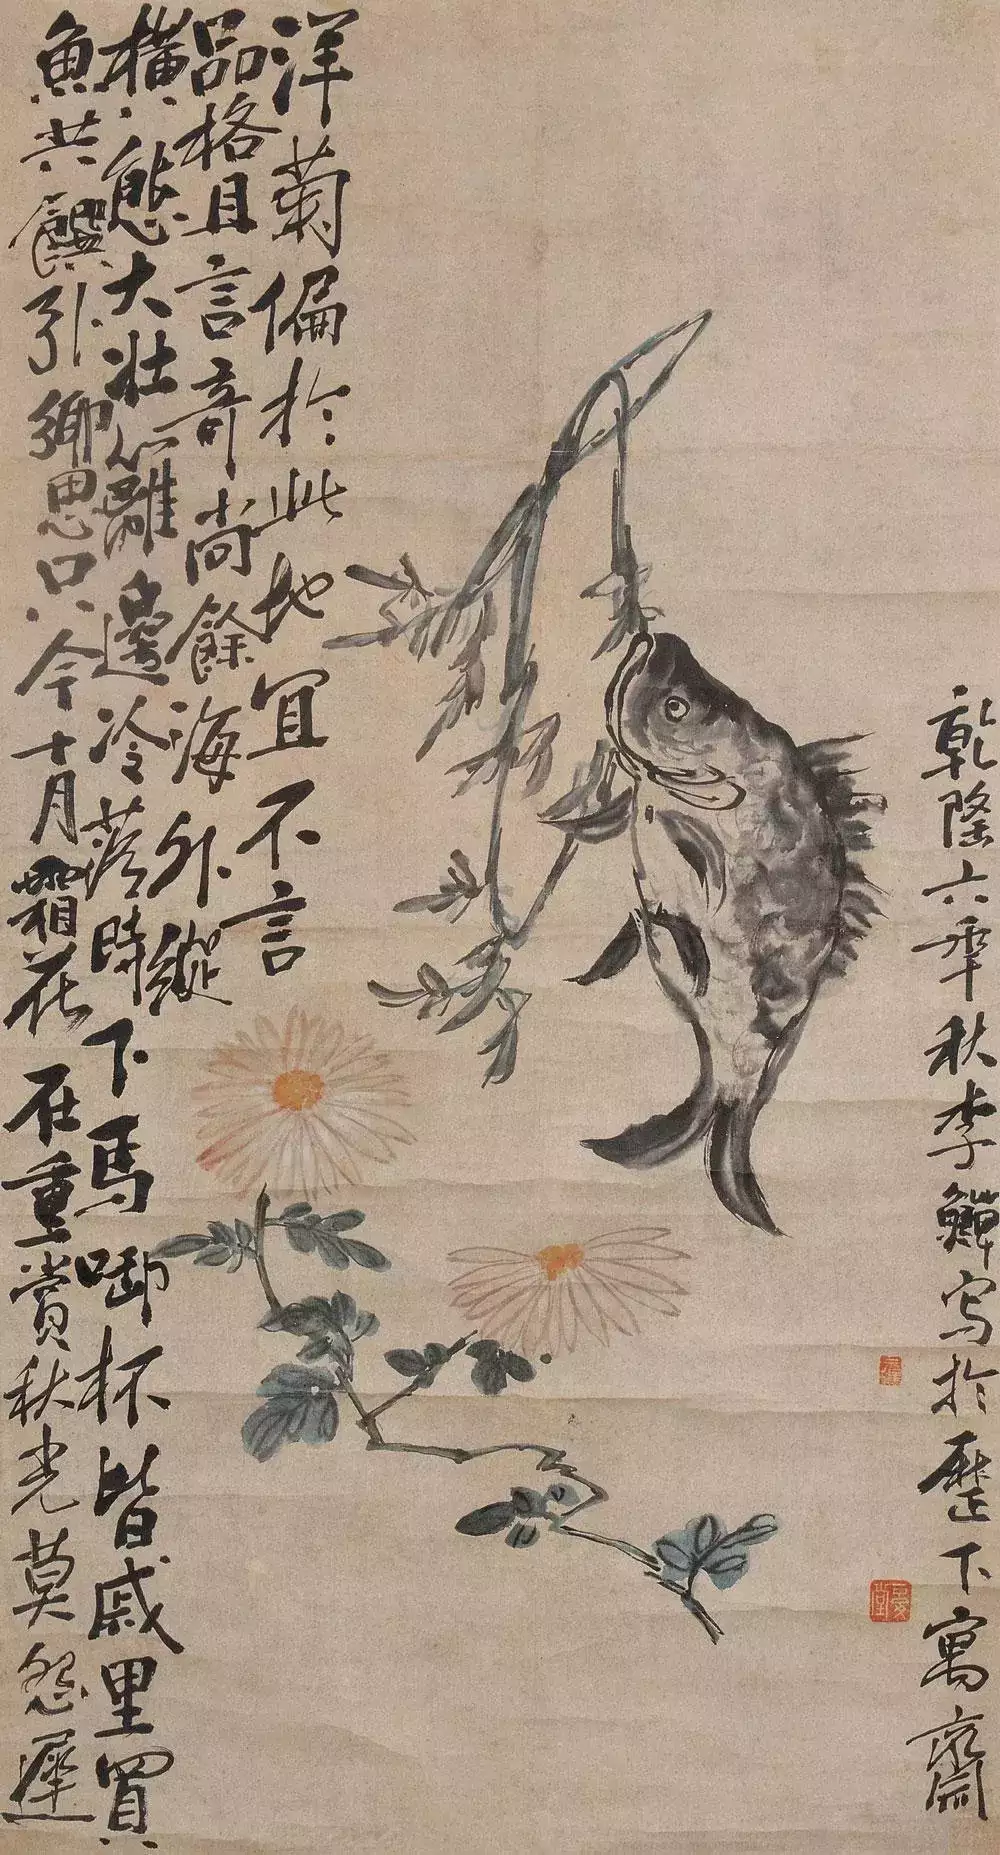 乾隆六秊秋李鱓写於歷下寓齋
洋菊偏於此地宜不言
品格且言奇尚餘海外縱
橫態大壯籬邊冷落時下馬啣杯皆戚里買
魚共饌引鄉思只今十月霜花在重賞秋光莫怨遲